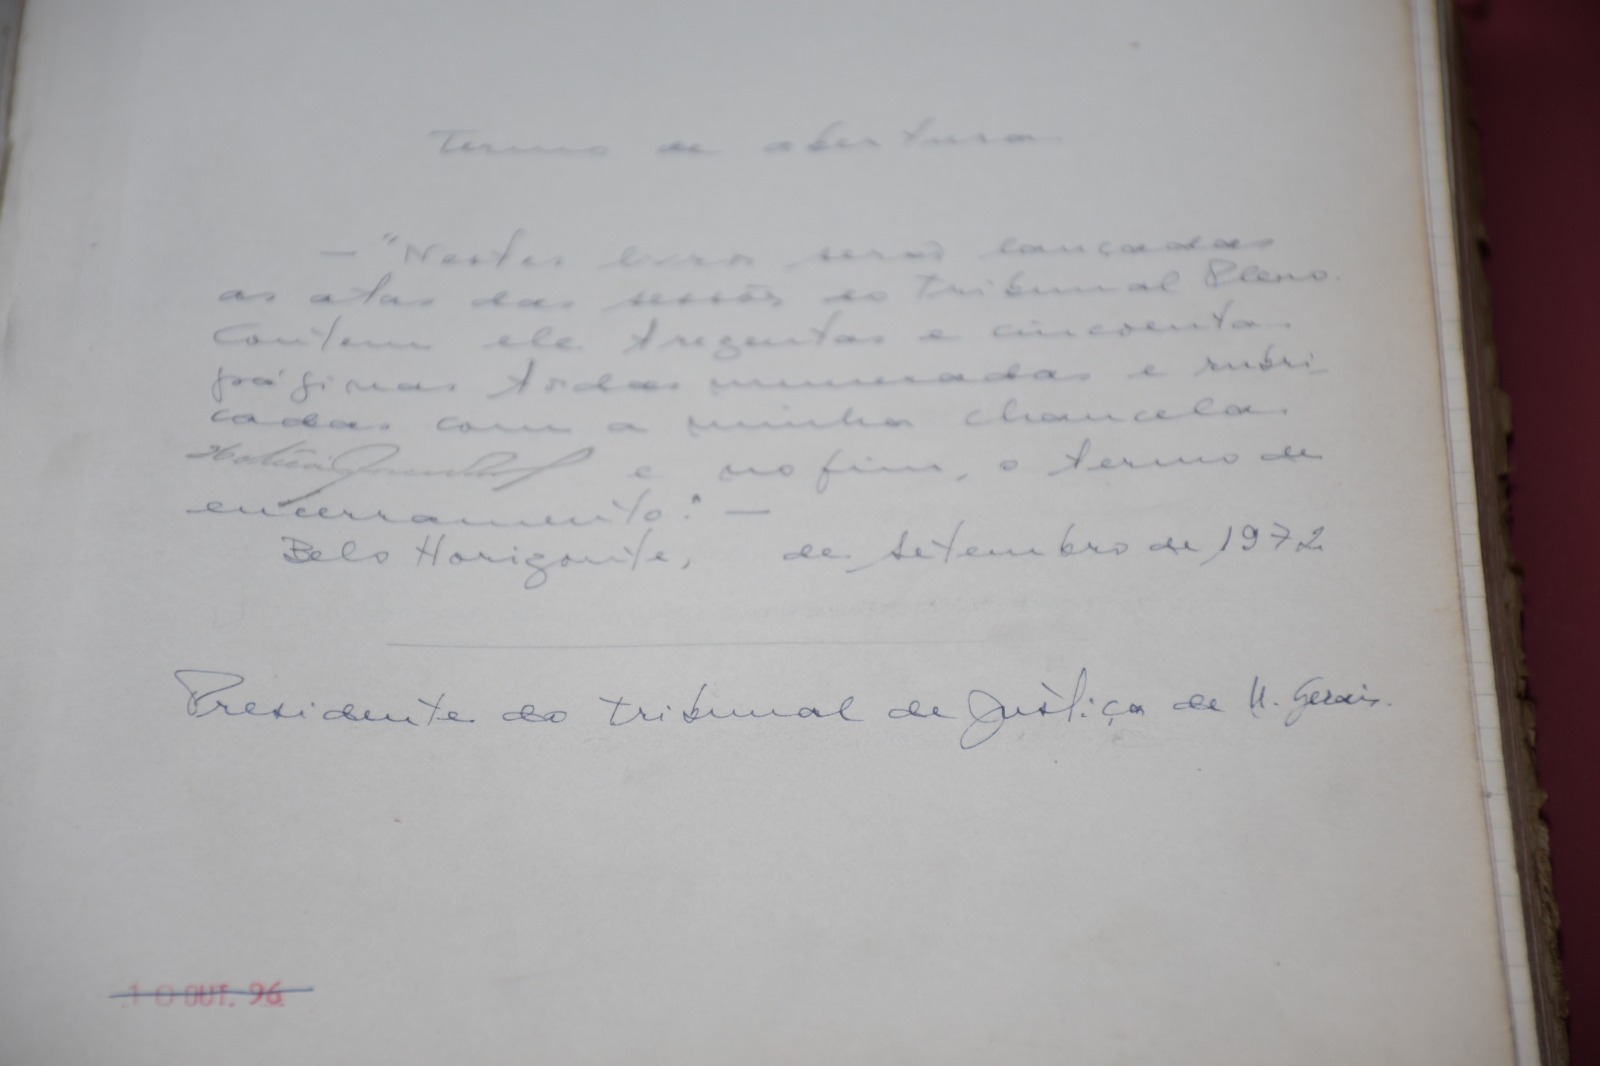 Termo de abertura
— "Neste livro serão lançadas
as atas das sessões do Tribunal Pleno.
Contem ele trezentas e cincoenta
páginas todas numeradas e rubri-
cadas com a minha chancela
e no fim, o termo de
encerramento." —
Belo Horizonte, de setembro de 1972
Presidente do Tribunal de Justiça de M. Gerais.
10 OUT. 96